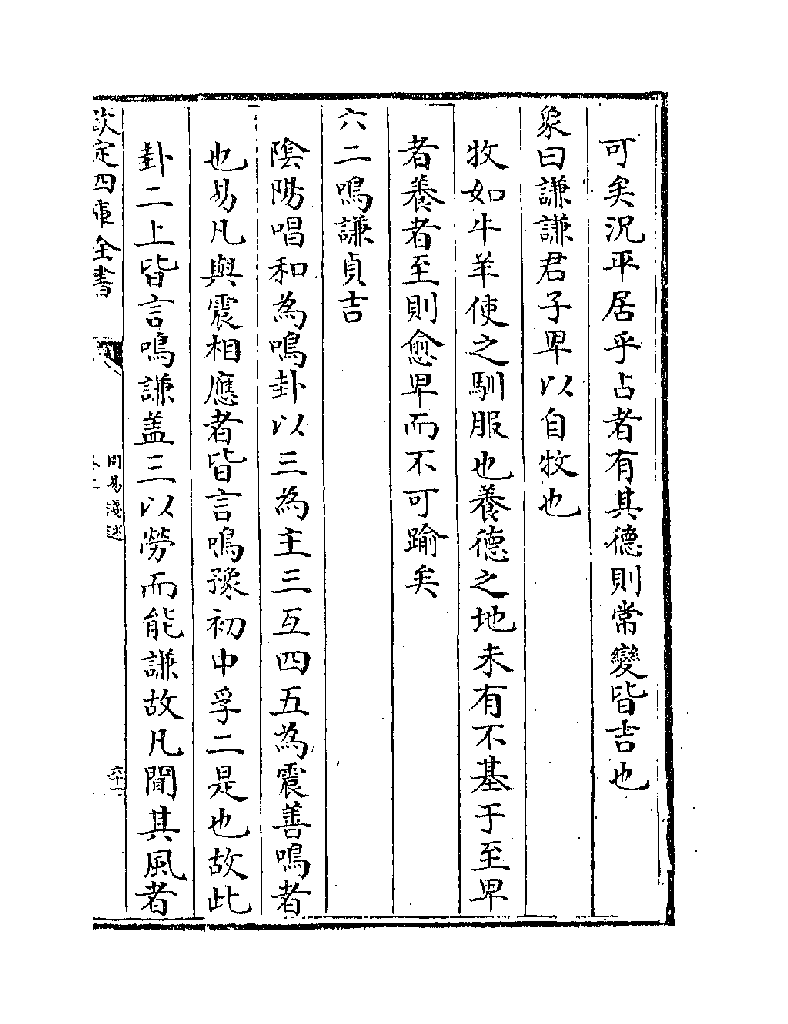 可矣況平居乎占者有其德則常變皆吉也
象曰謙謙君子卑以自牧也
牧如牛羊使之馴服也養德之地未有不基于至卑
者養者至則愈卑而不可踰矣
六二鳴謙貞吉
陰陽唱和為鳴卦以三為主三互四五為震善鳴者
也易凡與震相應者皆言鳴豫初中孚二是也故此
卦二上皆言鳴謙盖三以勞而能謙故凡聞其風者
欽定四庫全書
周易淺述